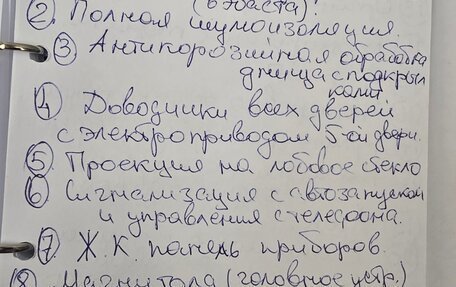 (в хаста)!
2. Полная шумоизоляция.
3 Антикорозийная обработка
днища с подкрыл
ками
4 Доводчики всех дверей
с электроприводом 5-ой двери.
5. Проекция на лобовое стекло
6 Сигнализация с автозапуском
и управления с телефона.
7. Ж.К. панель приборов.
(8) Магнитола (головное устр.)